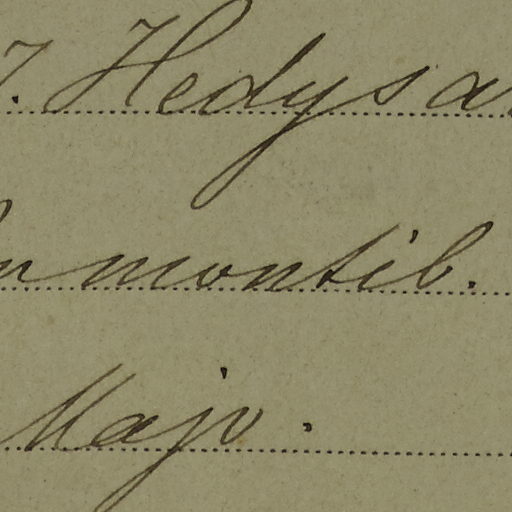 7. Hedysa
In montib.
Majo.